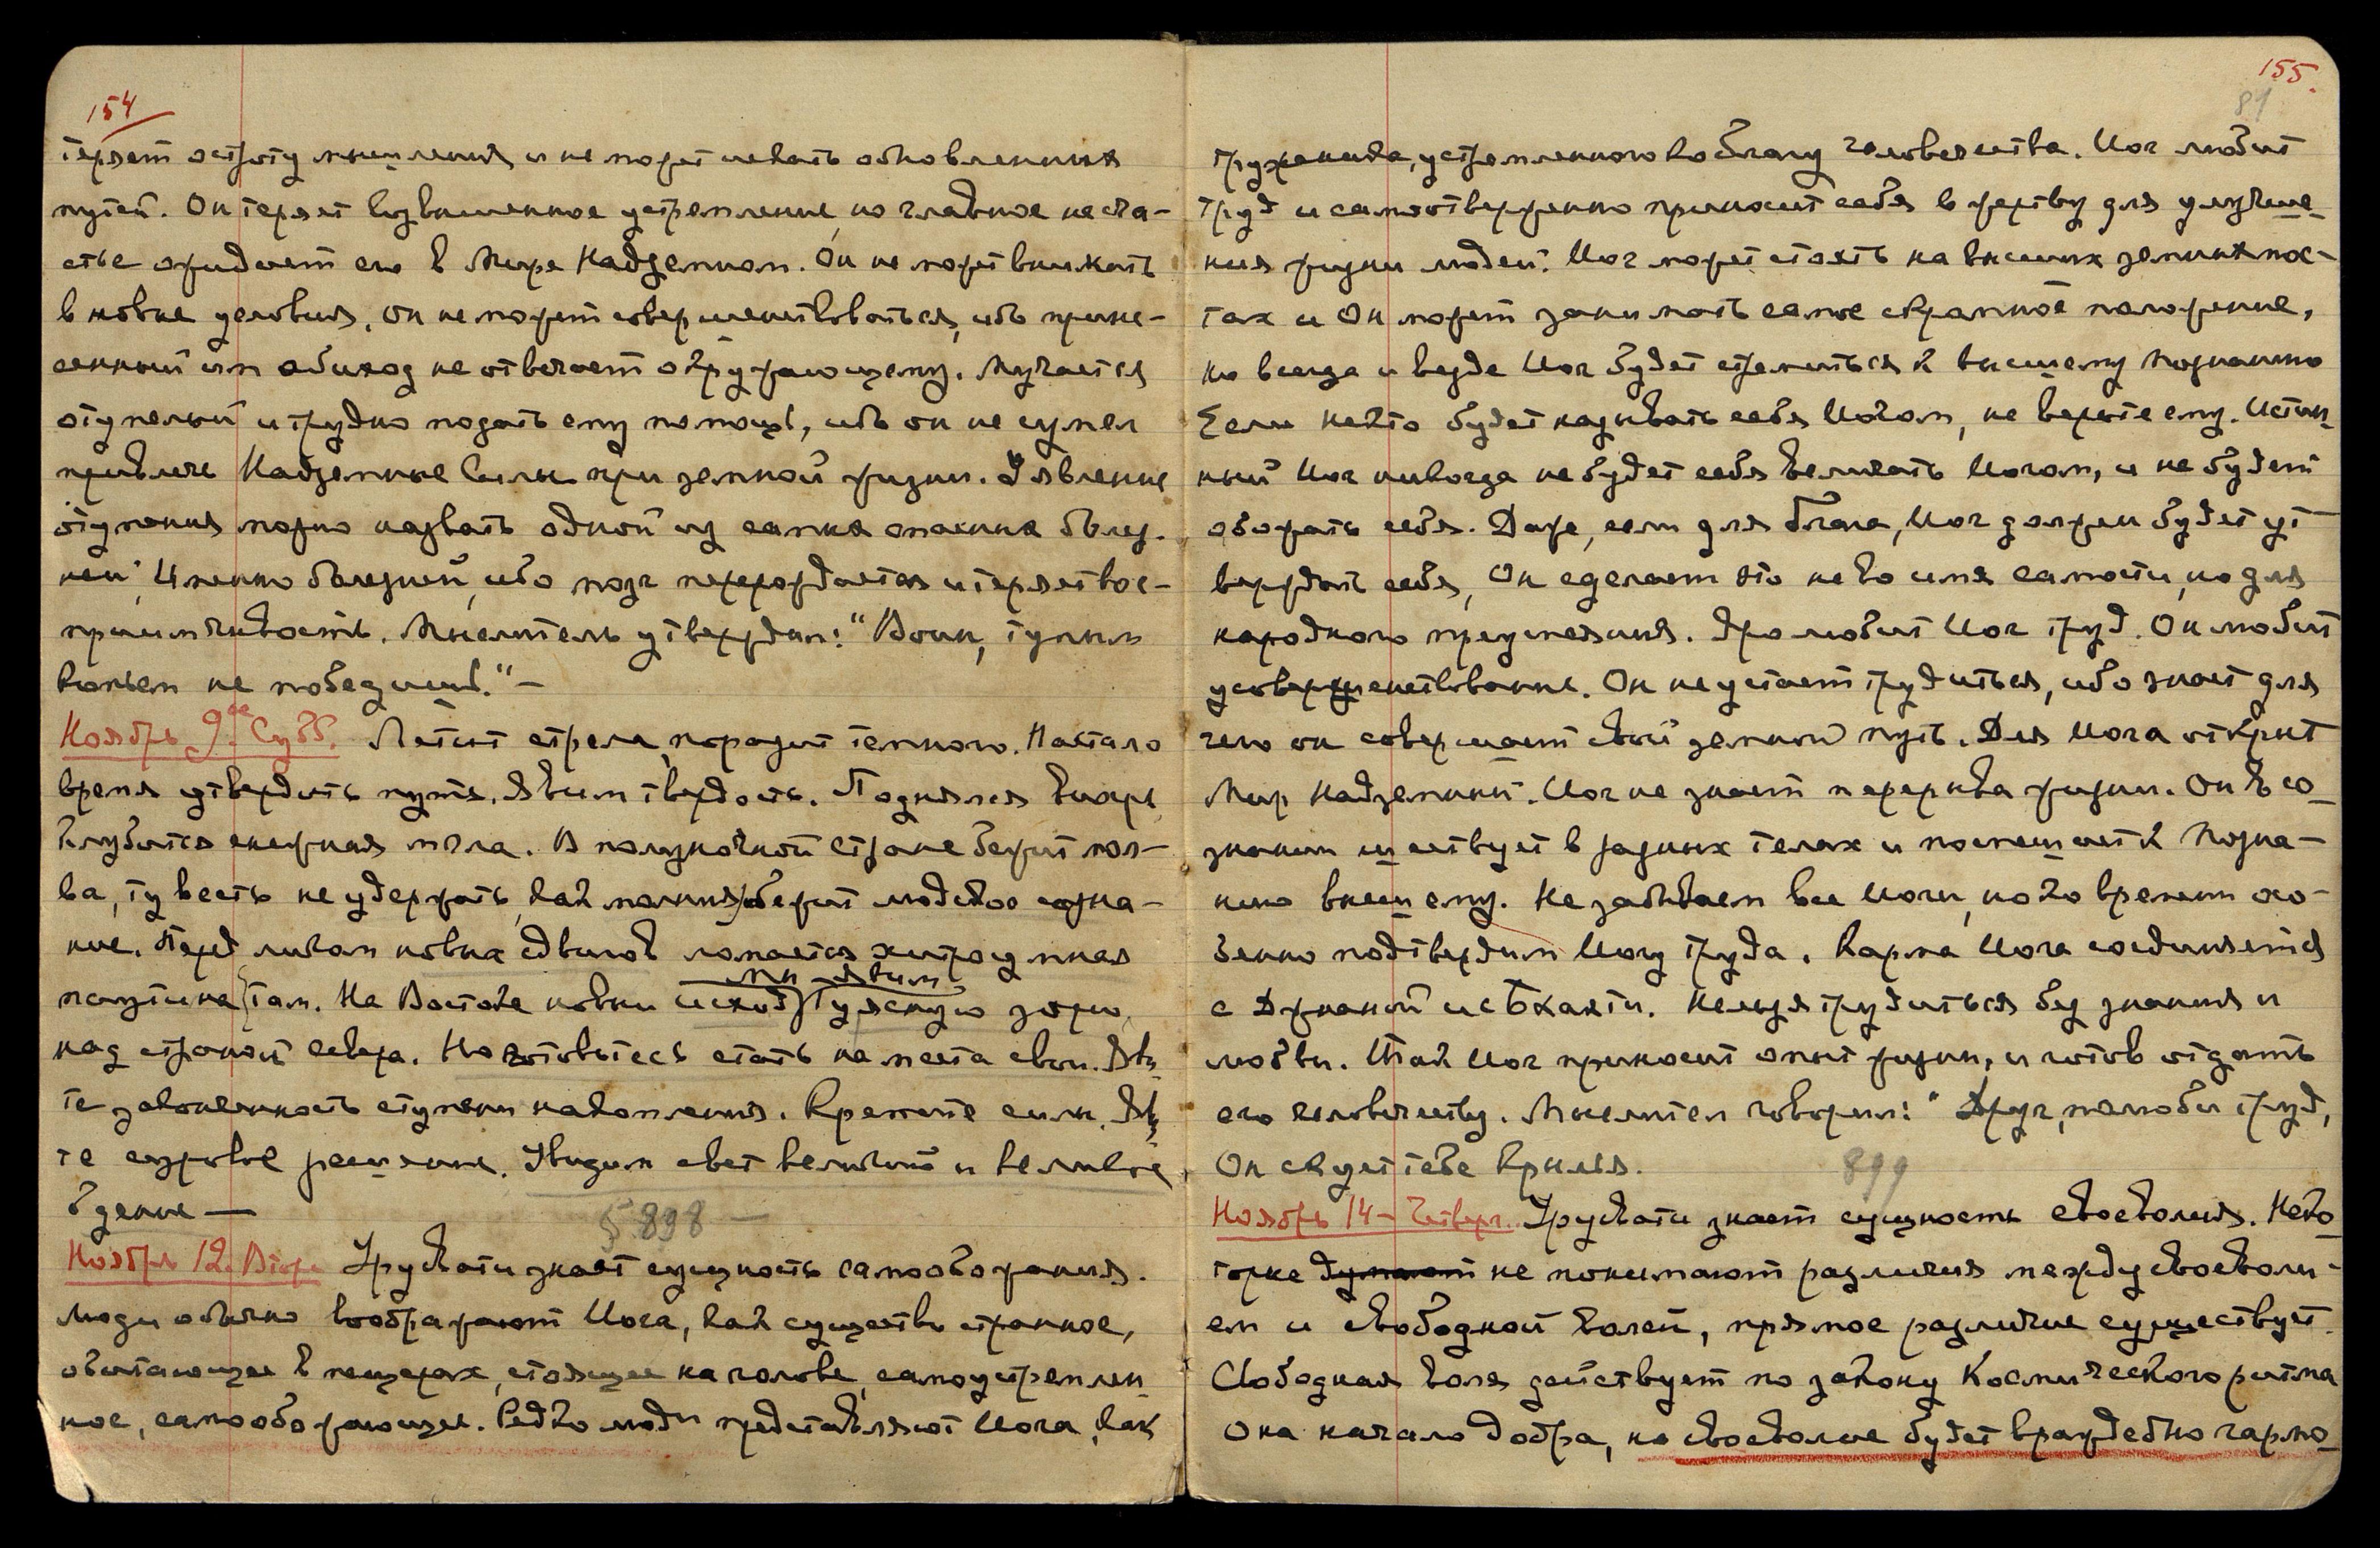 154
теряет остроту мышления и не может искать обновленных
путей. Он теряет возвышенное устремление, но главное несча-
стье ожидает его в Мире Надземном. Он не может вникать
в новые условия, он не может совершенствоваться, ибо прине-
сенный им обиход не отвечает окружающему. Мучается
отупелый и трудно подать ему помощь, ибо он не сумел
привлечь Надземные Силы при земной жизни. Явление
отупения можно назвать одной из самых опасных болез-
ней, Именно болезней, ибо мозг перерождается и теряет вос-
приимчивость. Мыслитель утверждал: "Воин, тупым
копьем не победишь." —
Ноябрь 9ое Субб. Летит стрела, поразит темного. Настало
время утвердить путь. Явим твердость. Поднялся вихрь,
клубится снежная мгла. В полуночной стране бежит мол-
ва, ту весть не удержать, как молния бежит людское созна-
ние. Перед ликом новых сдвигов ломается хитроумная
паутина там. На Востоке новый исход
мы явим
зорю
над страной севера. Но готовьтесь стать на места свои. Яви-
те законченность ступени накопления. Крепите силы. Яви-
те суровое решение. Увидим свет великий и великое
бдение —
§ 898 —
Ноябрь 12. Втор. Урусвати знает сущность самообожания.
Люди обычно воображают Йога, как существо странное,
обитающее в пещерах, стоящее на голове, самоустремлен-
ное, самообожающее. Редко люди представляют Йога, как
155.
81
труженика, устремленного ко благу человечества. Йог любит
труд и самоотверженно приносит себя в жертву для улучше-
ния жизни людей. Йог может стоять на высших земных пос-
тах и Он может занимать самое скромное положение,
но всегда и везде Йог будет стремиться к высшему познанию
Если некто будет называть себя Йогом, не верьте ему. Истин-
ный Йог никогда не будет себя величать Йогом, и не будет
обожать себя. Даже, если для блага, Йог должен будет ут
верждать себя, Он сделает это не во имя самости, но для
народного преуспеяния. Про любит Йог труд. Он любит
усовершенствование. Он не устает трудиться, ибо знает для
чего он совершает свой земной путь. Для Йога открыт
Мир Надземный. Йог не знает перерыва жизни. Он в со-
знании шествует в разных телах и поспешает к Позна-
нию высшему. Не забываем все Йоги, но ко времени осо-
бенно подтвердим Йогу труда. Карма Йога соединяется
с Джнаной и с Бхакти. Нельзя трудиться без знания и
любви. Итак Йог приносит опыт жизни, и готов отдать
его человечеству. Мыслитель говорил: "Друг, полюби труд,
Он скует тебе крылья.
899
Ноябрь 14 – Четверг. Урусвати знает сущность своеволия. Неко-
торые думают не понимают различия между своеволи-
ем и свободной волей, прямое различие существует.
Свободная воля действует по закону Космического ритма
Она начало добра, но своеволие будет враждебно гармо-